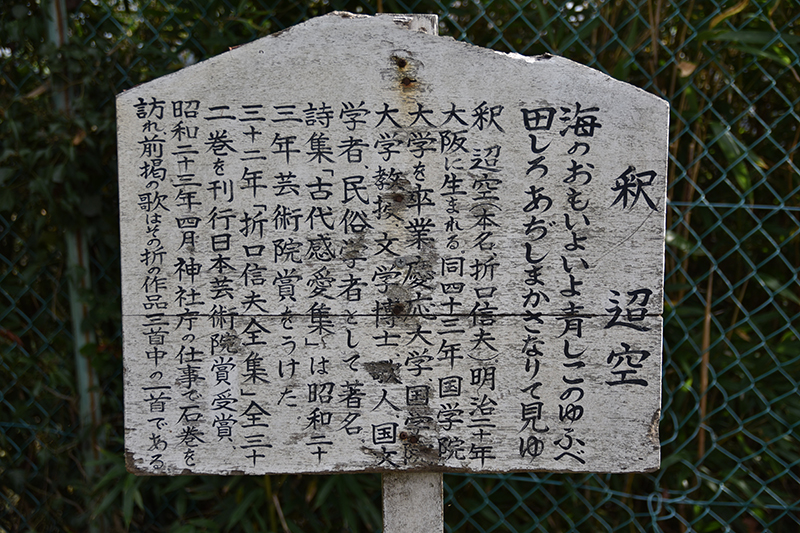 釈 迢空
海のおもいよいよ青しこのゆふべ
田しろあぢしまかさなりて見ゆ
釈 迢空(本名折口信夫)明治二十年
大阪に生まれる 同四十三年国学院
大学を卒業 慶応大学国学院
大学教授 文学博士、歌人国文
学者、民俗学者として著名
詩集「古代感愛集」は昭和二十
三年芸術院賞をうけた
三十二年「折口信夫全集」全三十
二巻を刊行日本芸術院賞受賞、
昭和二十三年四月神社庁の仕事で石巻を
訪れ前掲の歌はその折の作品三首中の一首である